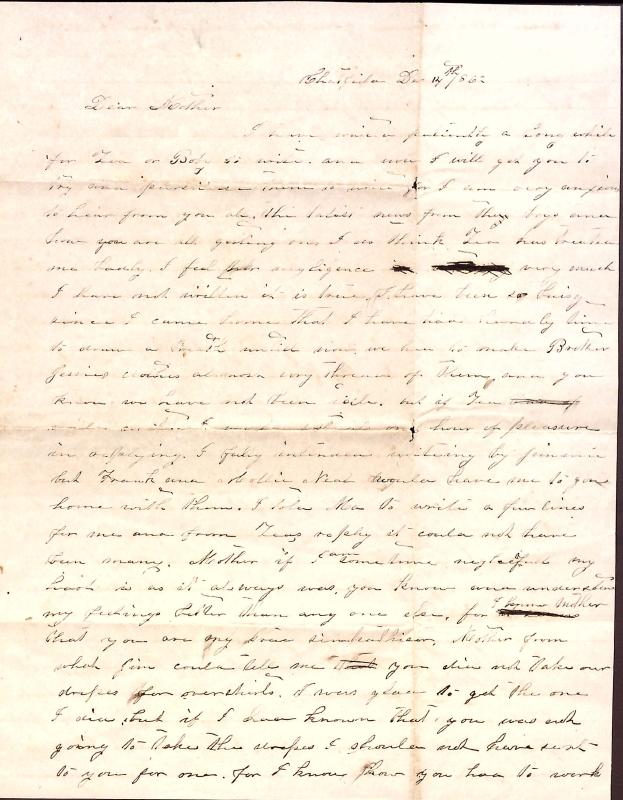 Dec 14th 1862
Dear Mother
I have waited patiently a long while
for or Bob to write. and now I will get you to
try and to write for I am very anxious
to hear from you all, the latest news from the boys and
how you are all getting on, I do think has treated
me badly. I feel negligence very much
I have not written it is true, I have been so busy
since I came home that I have had hardly time
to draw a breath we had to make Brother
clothes almost every thread of them, and you
know we have not been idle. but if
one hour of pleasure
in replying. I fully intended writing by
but Frank and Mollie Neal would have me to go
home with them. I told Ma to write a few lines
for me and from reply it could not have
been many. Mother if I am sometime neglectful my
heart is as it always was, you know and understand
my feelings better than any one else, for I know Mother
that you are my true Mother from
what Jim could tell me you did not take our
dresses for overshirts. I was glad to get the one
I did, but if I had known that you was not
going to take the dresses I should not have sent
to you for one. for I know how you had to work